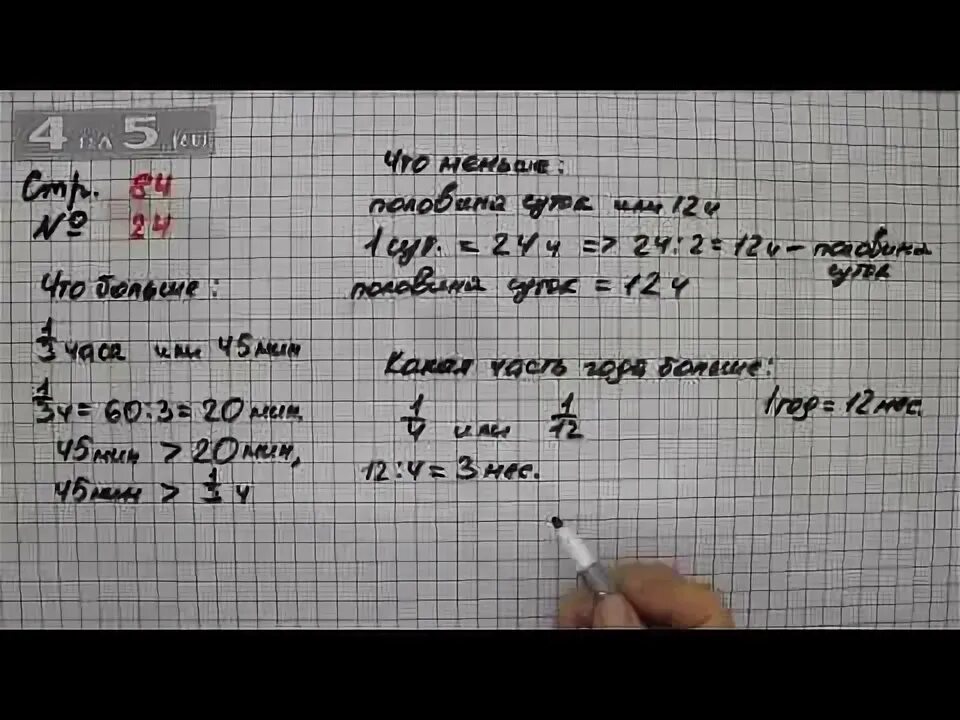 4 на 5.com
Стр. 84
№ 24
Что больше:
1/3 часа или 45 мин
1/3 ч = 60 : 3 = 20 мин
45 мин > 20 мин,
45 мин > 1/3 ч
Что меньше:
половина суток или 12 ч
1 сут. = 24 ч => 24 : 2 = 12 ч – половина суток
половина суток = 12 ч
Какая часть года больше:
1/4 или 1/12
1 год = 12 мес.
12 : 4 = 3 мес.